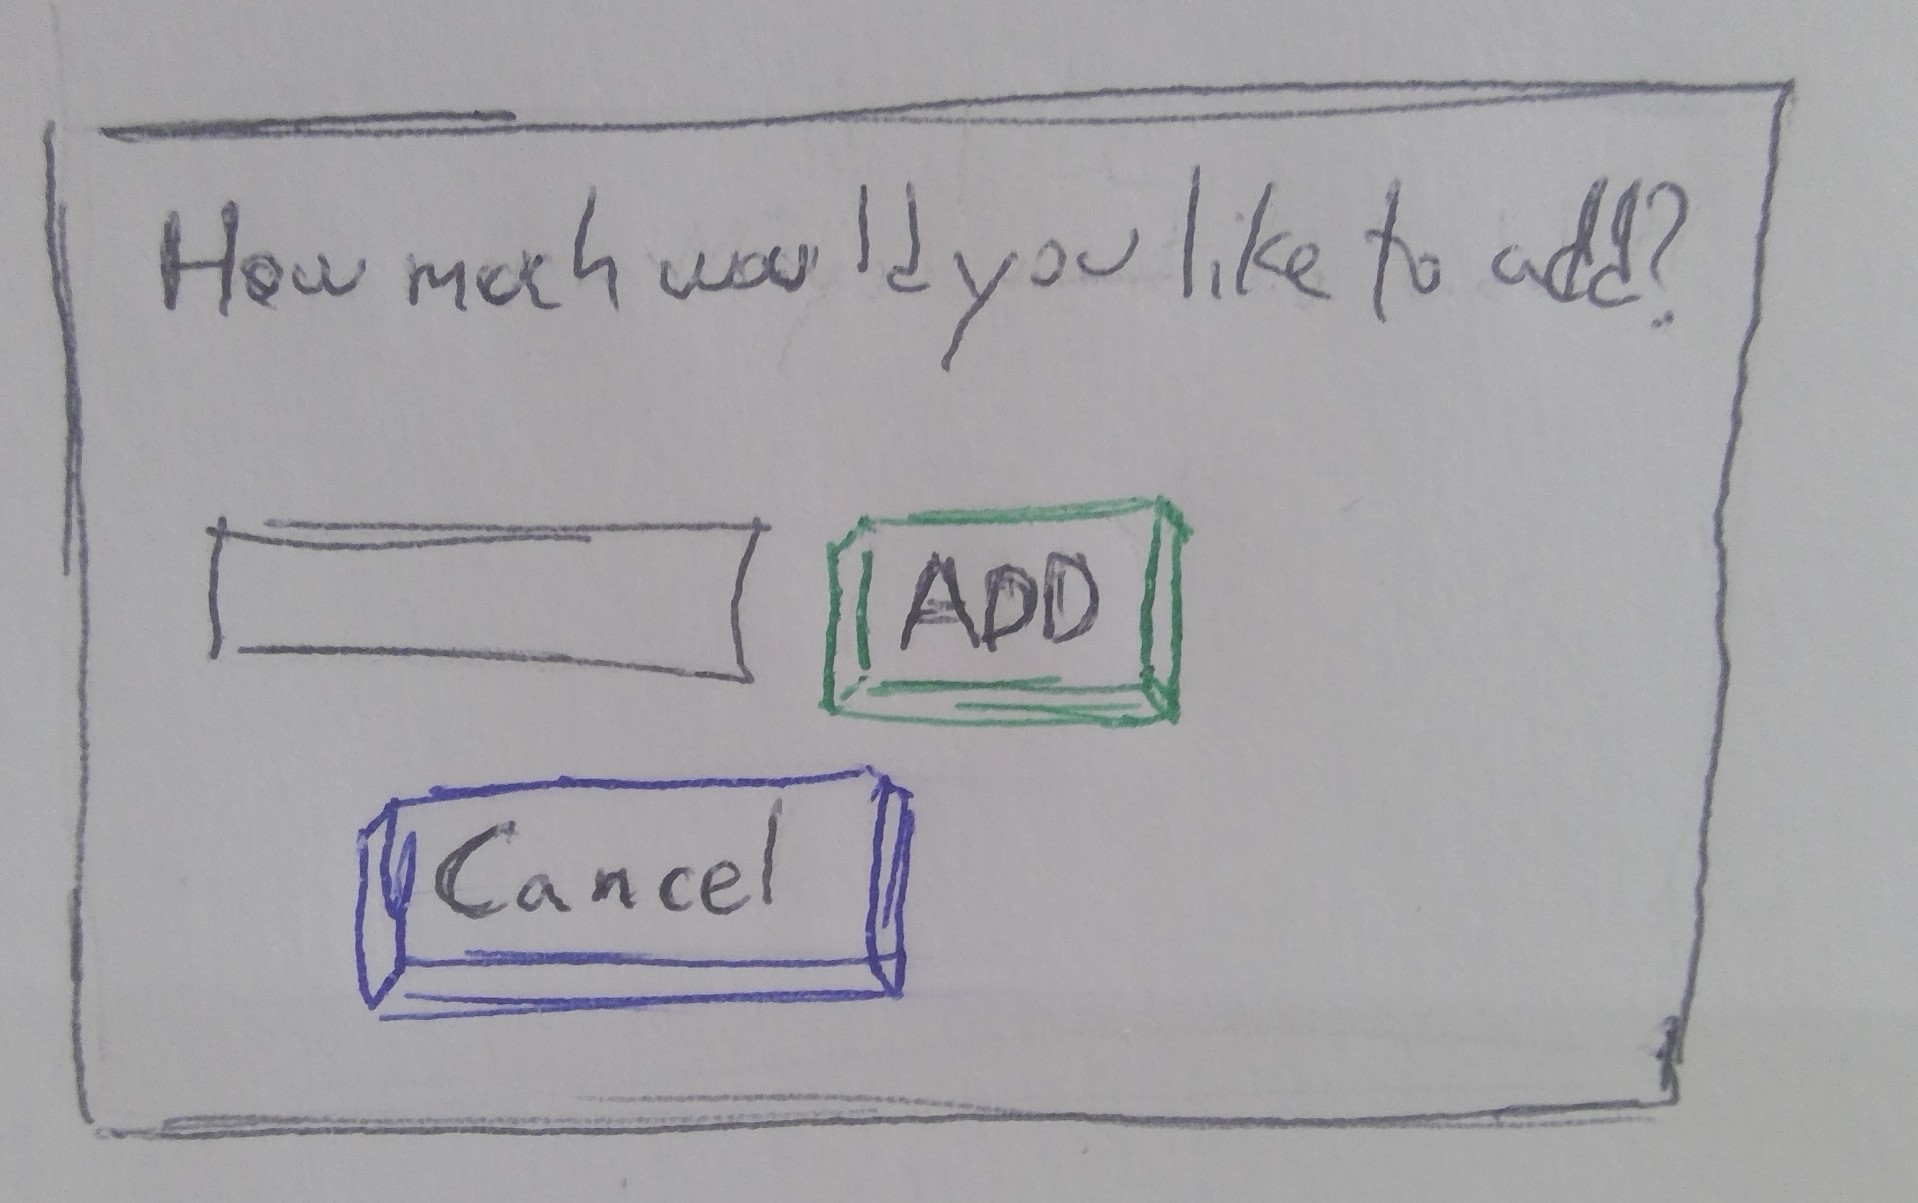 How much would you like to add?
ADD
Cancel